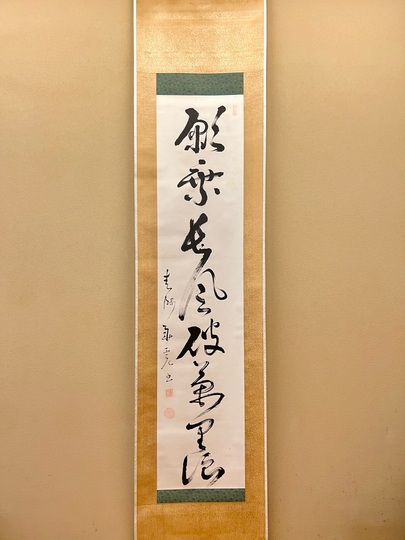 願乘長風破萬里浪